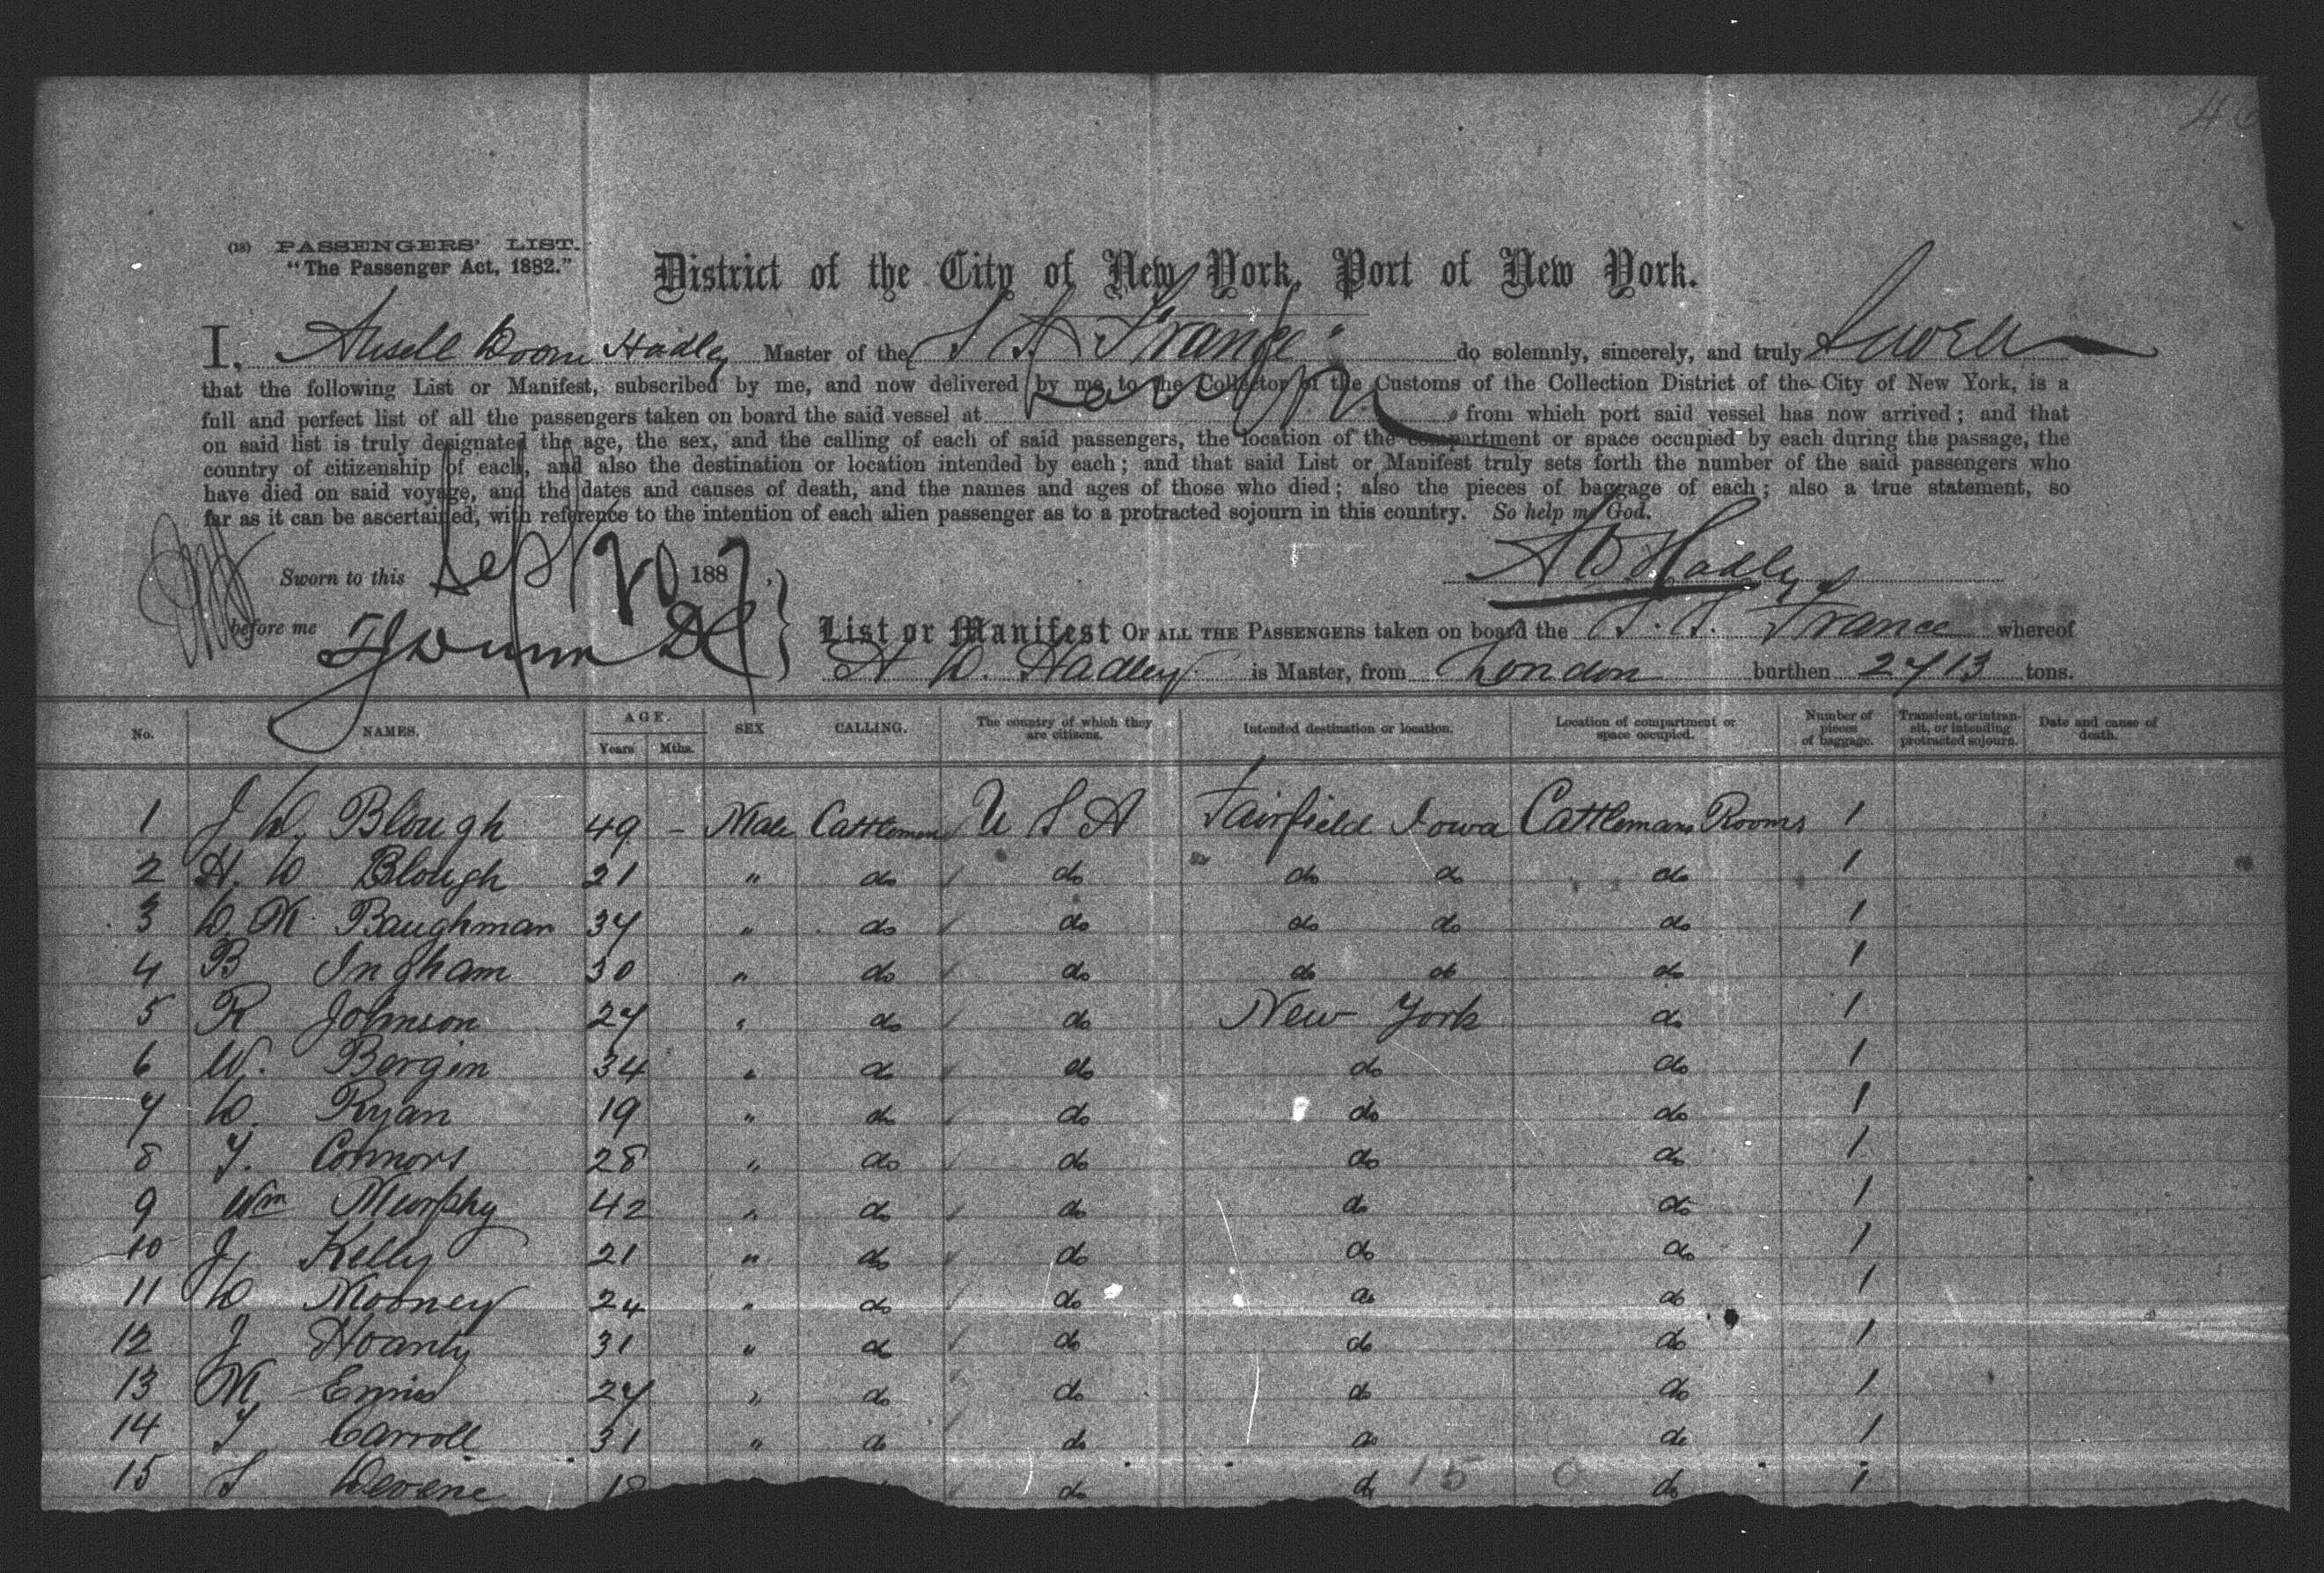 46
(18) PASSENGERS' LIST.
"The Passenger Act, 1882."
District of the City of New York, Port of New York.
I, Hadley Master of the S S "France" do solemnly, sincerely, and truly Swear
that the following List or Manifest, subscribed by me, and now delivered by me to the Collector of the Customs of the Collection District of the City of New York, is a
full and perfect list of all the passengers taken on board the said vessel at London from which port said vessel has now arrived; and that
on said list is truly designated the age, the sex, and the calling of each of said passengers, the location of the compartment or space occupied by each during the passage, the
country of citizenship of each, and also the destination or location intended by each; and that said List or Manifest truly sets forth the number of the said passengers who
have died on said voyage, and the dates and causes of death, and the names and ages of those who died; also the pieces of baggage of each; also a true statement, so
far as it can be ascertained, with reference to the intention of each alien passenger as to a protracted sojourn in this country. So help me God.
Sworn to this Sept 20 1887,
A D Hadley
before me
List or Manifest OF ALL THE PASSENGERS taken on board the S. S. France whereof
A D. Hadley is Master, from London burthen 2713 tons.
No. NAMES. AGE. Years Mths. SEX CALLING. The country of which they are citizens. Intended destination or location. Location of compartment or space occupied. Number of pieces of baggage. Transient, or in transit, or intending protracted sojourn. Date and cause of death.
1 J D. Blough 49 – Male Cattleman U S A Fairfield Iowa Cattlemans Rooms 1
2 H. D Blough 21 " do do do do do 1
3 D. M. Baughman 37 " do do do do do 1
4 B Ingham 30 " do do do do do 1
5 R Johnson 27 " do do New York do 1
6 W. Bergin 34 " do do do do 1
7 D. Ryan 19 " do do do do 1
8 T. Connors 28 " do do do do 1
9 Wm Murphy 42 " do do do do 1
10 J Kelly 21 " do do do do 1
11 D Mooney 24 " do do do do 1
12 J Hoanty 31 " do do do do 1
13 M Ennis 27 " do do do do 1
14 T Carroll 31 " do do do do 1
15 S Devene 18 do do do 1
15 0